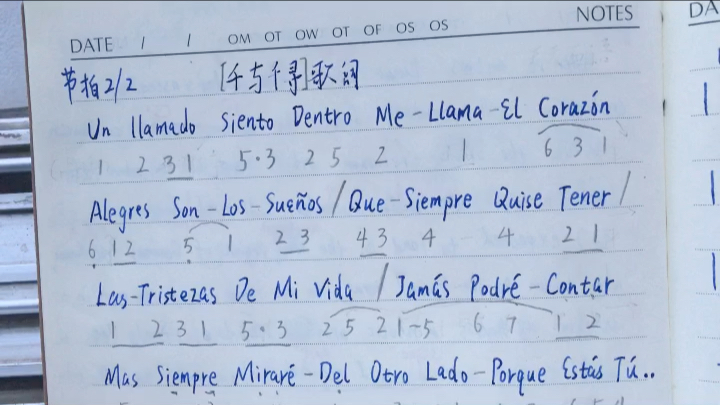 DATE / / OM OT OW OT OF OS OS NOTES DA
节拍2/2 [千与千寻]歌词
Un llamado Siento Dentro Me-Llama-El Corazón
1 2 31 5·3 2 5 2 1 6 3 1
Alegres Son-Los-Sueños/Que-Siempre Quise Tener/
6 12 5 1 2 3 4 3 4 - 4 2 1
Las-Tristezas De Mi Vida / Jamás Podré-Contar
1 2 3 1 5·3 2 5 2 1-5 6 7 1 2
Mas Siempre Miraré-Del Otro Lado-Porque Estás Tú..